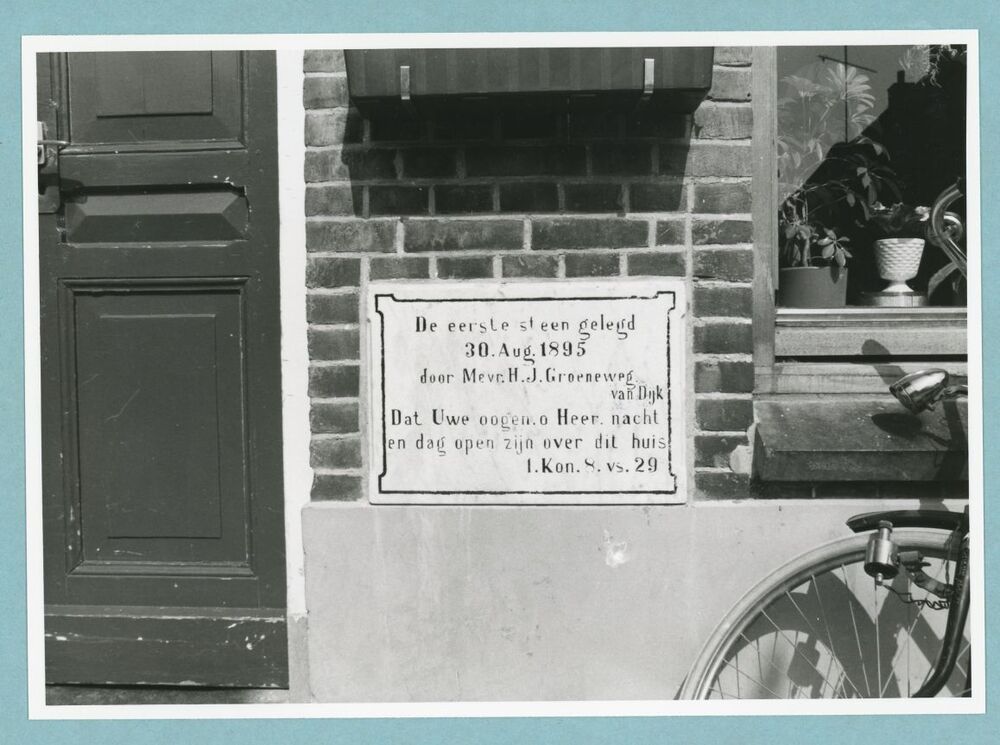 De eerste steen gelegd
30. Aug. 1895
door Mevr. H. J. Groeneweg.
van Dijk
Dat Uwe oogen. o Heer. nacht
en dag open zijn over dit huis
1. Kon. 8. vs. 29